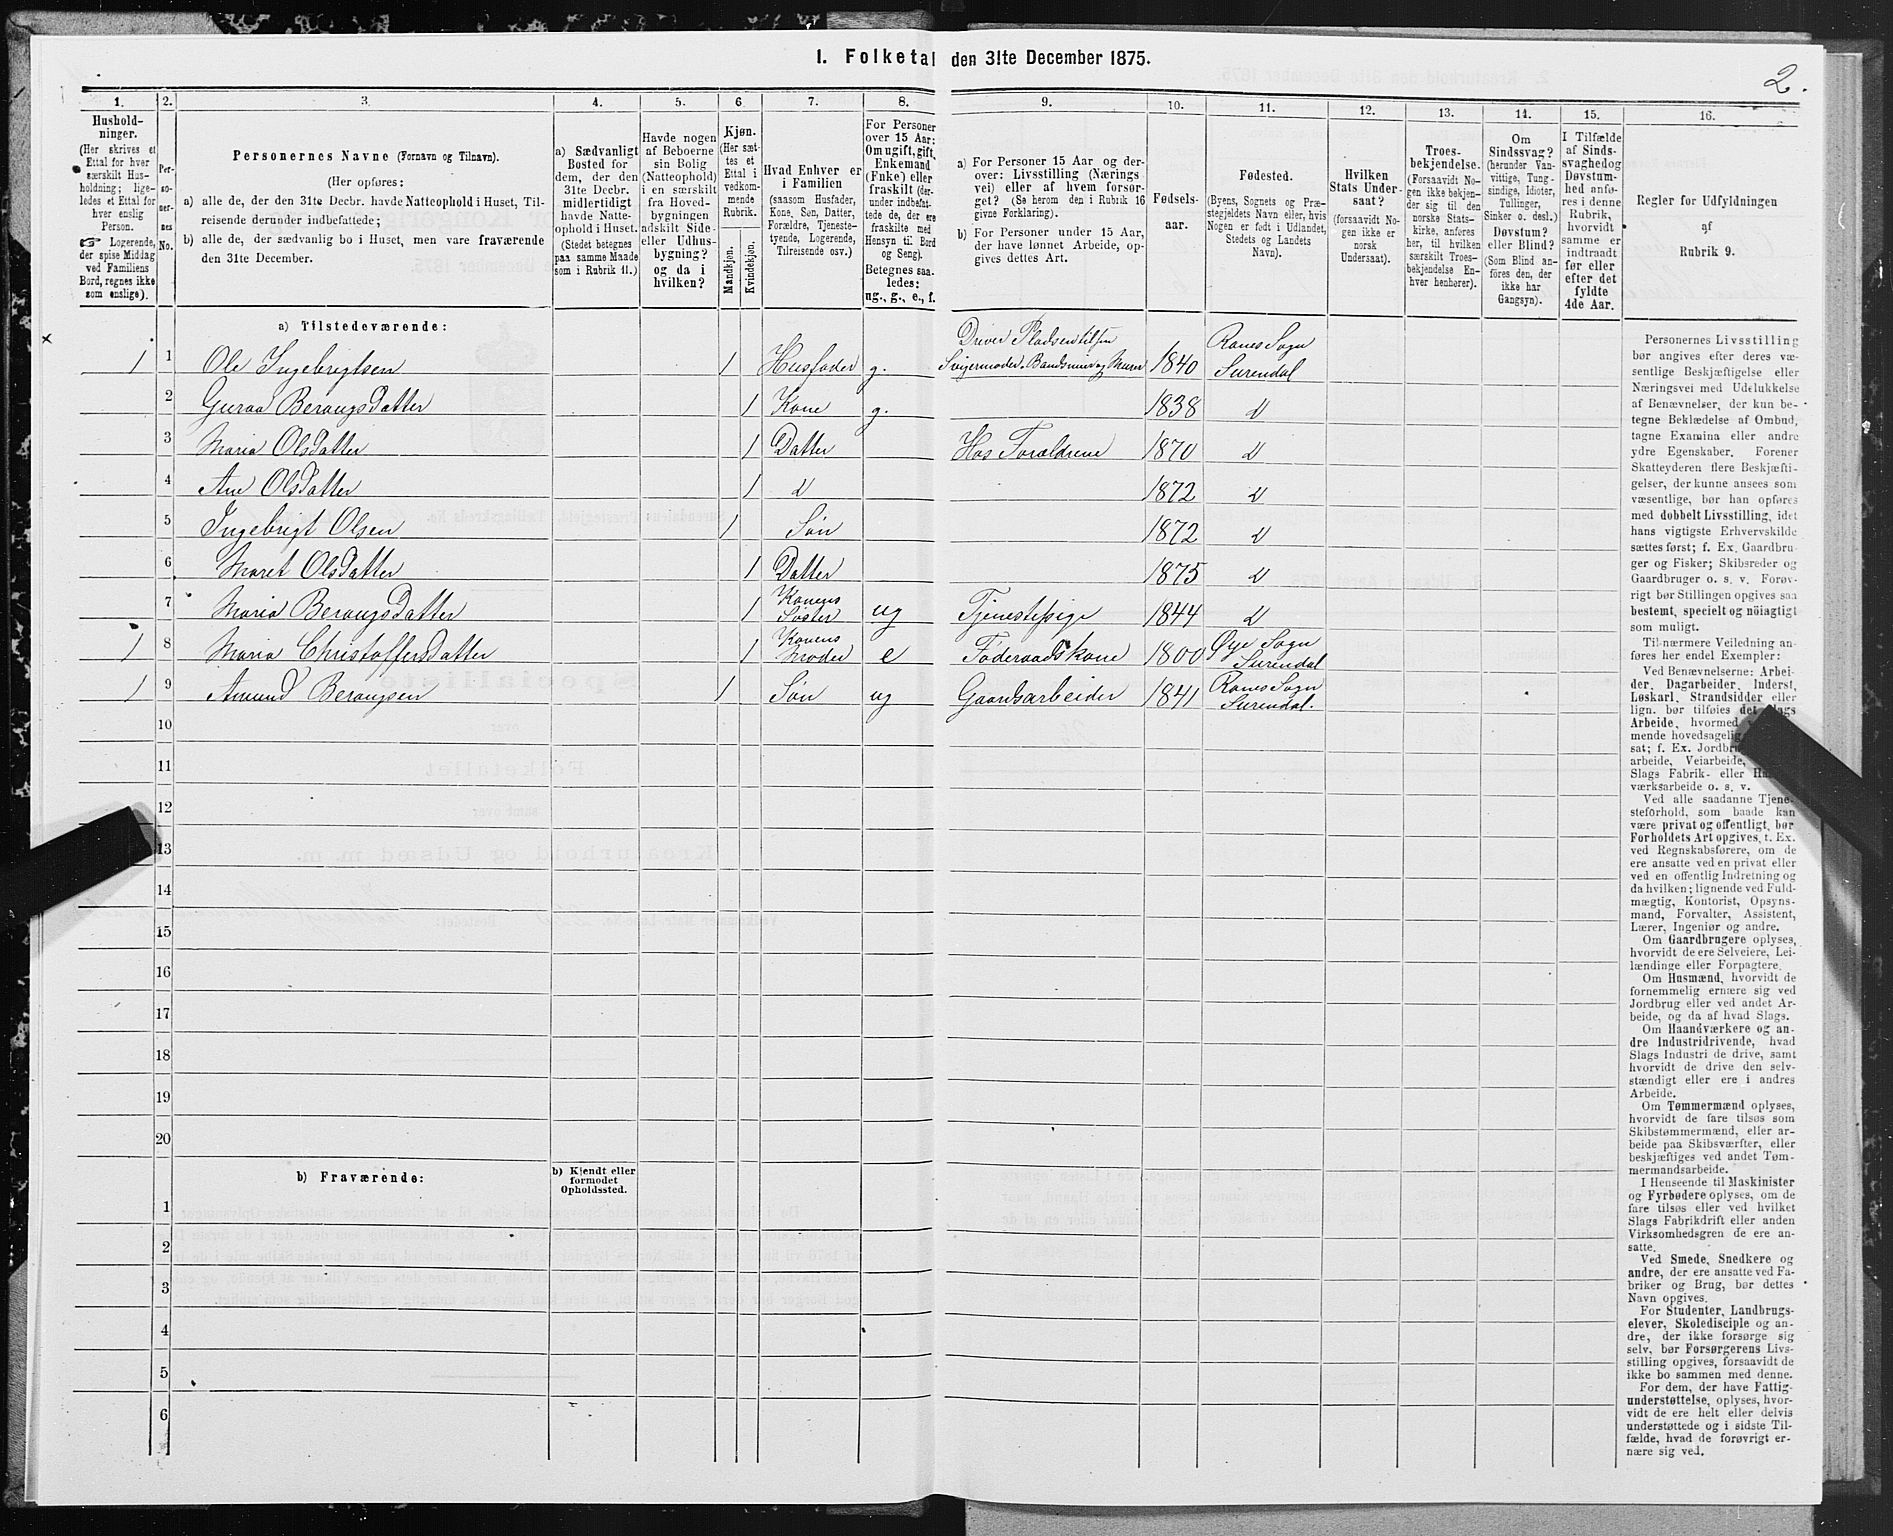 I. Folketal den 31te December 1875.
2.
1. 2. 3. 4. 5. 6. 7. 8. 9. 10. 11. 12. 13. 14. 15. 16.
Hushold-
ninger.
(Her skrives et
Ettal for hver
særskilt Hus-
holdning; lige-
ledes et Ettal for
hver enslig
Person.
☞ Logerende,
der spise Middag
ved Familiens
Bord, regnes ikke
som enslige).
Per-
so-
ner-
nes
No.
Personernes Navne (Fornavn og Tilnavn).
(Her opføres:
a) alle de, der den 31te Decbr. havde Natteophold i Huset, Til-
reisende derunder indbefattede;
b) alle de, der sædvanlig bo i Huset, men vare fraværende
den 31te December.
a) Sædvanligt
Bosted for
dem, der den
31te Decbr.
midlertidigt
havde Natte-
ophold i Huset.
(Stedet betegnes
paa samme Maade
som i Rubrik 11.)
Havde nogen
af Beboerne
sin Bolig
(Natteophold)
i en særskilt
fra Hoved-
bygningen
adskilt Side-
eller Udhus-
bygning?
og da i
hvilken?
Kjøn.
(Her sæt-
tes et
Ettal i
vedkom-
mende
Rubrik.
Mandkjøn.
Kvindekjøn.
Hvad Enhver er
i Familien
(saasom Husfader,
Kone, Søn, Datter,
Forældre, Tjeneste-
tyende, Logerende,
Tilreisende osv.)
For Personer
over 15 Aar:
Om ugift, gift,
Enkemand
(Enke) eller
fraskilt (der-
under indbefat-
tede de, der ere
fraskilte med
Hensyn til Bord
og Seng).
Betegnes saa-
ledes:
ug., g., e., f.
a) For Personer 15 Aar og der-
over: Livsstilling (Nærings-
vei) eller af hvem forsør-
get? (Se herom den i Rubrik 16
givne Forklaring).
b) For Personer under 15 Aar,
der have lønnet Arbeide, op-
gives dettes Art.
Fødsels-
aar.
Fødested.
(Byens, Sognets og Præ-
stegjeldets Navn eller, hvis
Nogen er født i Udlandet,
Stedets og Landets
Navn).
Hvilken
Stats Under-
saat?
(forsaavidt No-
gen ikke er
norsk
Undersaat).
Troes-
bekjendelse.
(Forsaavidt No-
gen ikke bekjen-
der sig til den
norske Stats-
kirke, anføres
her, til hvilken
særskilt Troes-
bekjendelse En-
hver henhører).
Om
Sindssvag?
(herunder Van-
vittige, Tung-
sindige, Idioter,
Tullinger,
Sinker o. desl.)
Døvstum?
eller Blind?
(Som Blind an-
føres den, der
ikke har
Gangsyn).
I Tilfælde
af Sinds-
svaghed og
Døvstum-
hed anfø-
res i denne
Rubrik,
hvorvidt
samme er
indtraadt
før eller
efter det
fyldte
4de Aar.
Regler for Udfyldningen
af
Rubrik 9.
a) Tilstedeværende:
1 1 Ole Ingebrigtsen 1 Husfader g. Driver Pladsen tilhør Svigermoder. Bundsmed og Murer 1840 Ranes Sogn Surendal
2 Guraa BerangsDatter 1 Kone g. 1838 d
3 Maria OlsDatter 1 Datter Hos Forældrene 1870 d
4 Ane OlsDatter 1 d 1872 d
5 Ingebrigt Olsen 1 Søn 1872 d
6 Maret OlsDatter 1 Datter 1875 d
7 Maria BerangsDatter 1 Konens Søster ug Tjenestepige 1844 d
1 8 Maria ChristoffersDatter 1 Konens Moder e Føderaadskone 1800 Øye Sogn Surendal
1 9 Amund Berangsen 1 Søn ug Gaardsarbeider 1841 Ranes Sogn Surendal.
10
11
12
13
14
15
16
17
18
19
20
b) Fraværende:
b) Kjendt eller
formodet
Opholdssted.
1
2
3
4
5
6
Personernes Livsstilling
bør angives efter deres væ-
sentlige Beskjæftigelse eller
Næringsvei med Udelukkelse
af Benævnelser, der kun be-
tegne Beklædelse af Ombud,
tagne Examina eller andre
ydre Egenskaber. Forener
Skatteyderen flere Beskjæfti-
gelser, der kunne ansees som
væsentlige, bør han opføres
med dobbelt Livsstilling, idet
hans vigtigste Erhvervskilde
sættes først; f. Ex. Gaardbru-
ger og Fisker; Skibsreder og
Gaardbruger o. s. v. Forøv-
rigt bør Stillingen opgives saa
bestemt, specielt og nöiagtigt
som muligt.
Til nærmere Veiledning an-
føres her endel Exempler:
Ved Benævnelserne: Arbei-
der, Dagarbeider, Inderst,
Løskarl, Strandsidder eller
lign. bør tilføies det Slags
Arbeide, hvormed
mende hovedsagelig
sat; f. Ex. Jordbr
arbeide, Veiarbeide,
Slags Fabrik- eller
værksarbeide o. s. v.
Ved alle saadanne Tjene-
steforhold, som baade kan
være privat og offentligt, bør
Forholdets Art opgives, t. Ex.
ved Regnskabsførere, om de
ere ansatte ved en privat eller
ved en offentlig Indretning og
da hvilken; lignende ved Fuld-
mægtig, Kontorist, Opsyns-
mand, Forvalter, Assistent,
Lærer, Ingeniør og andre.
Om Gaardbrugere oplyses,
hvorvidt de ere Selveiere, Lei-
lændinge eller Forpagtere.
Om Husmænd, hvorvidt de
fornemmelig ernære sig ved
Jordbrug eller ved andet Ar-
beide, og da af hvad Slags.
Om Haandværkere og an-
dre Industridrivende, hvad
Slags Industri de drive, samt
hvorvidt de drive den selv-
stændigt eller ere i andres
Arbeide.
Om Tømmermænd oplyses,
hvorvidt de fare tilsøs som
Skibstømmermænd, eller ar-
beide paa Skibsværfter, eller
beskjæftiges ved andet Tøm-
mermandsarbeide.
I Henseende til Maskinister
og Fyrbødere oplyses, om de
fare tilsøs eller ved hvilket
Slags Fabrikdrift eller anden
Virksomhedsgren de ere an-
satte.
Ved Smede, Snedkere og
andre, der ere ansatte ved Fa-
briker og Brug, bør dettes
Navn opgives.
For Studenter, Landbrugs-
elever, Skoledisciple og an-
dre, der ikke forsørge sig
selv, bør Forsørgerens Livs-
stilling opgives, forsaavidt de
ikke bo sammen med denne.
For dem, der have Fattig-
understøttelse, oplyses, hvor-
vidt de ere helt eller delvis
understøttede og i sidste Til-
fælde, hvad de forøvrigt er-
nære sig ved.